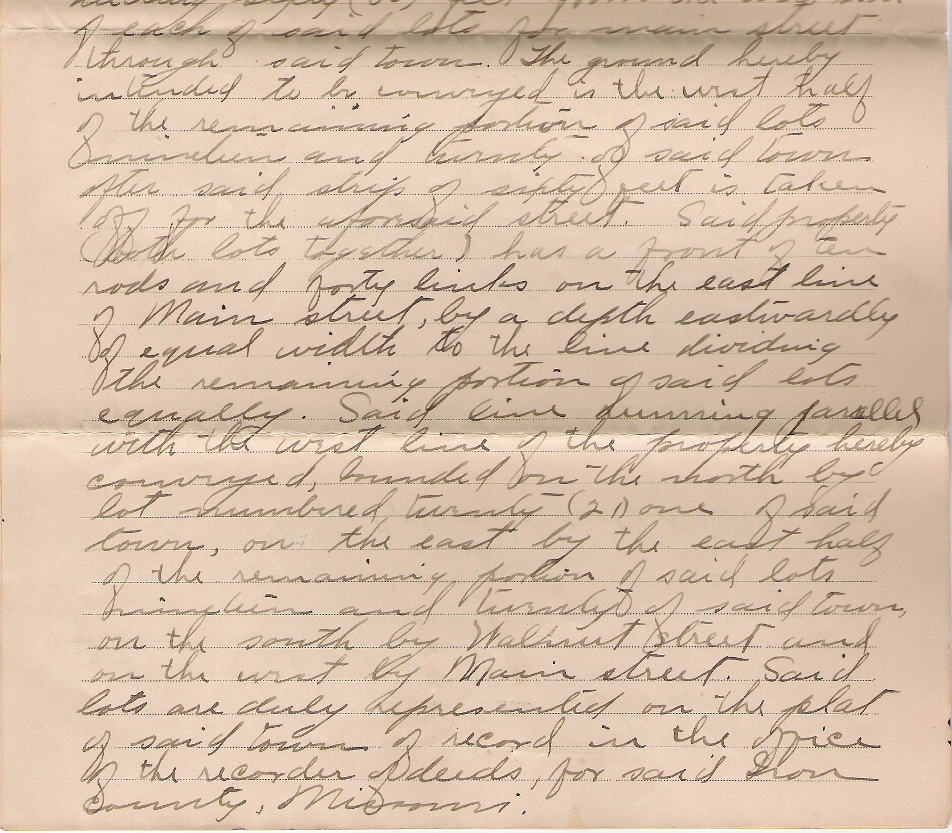 sixty (60) feet from the west
of each of said lots for main street
through said town. The ground hereby
intended to be conveyed is the west half
of the remaining portion of said lots
nineteen and twenty of said town
after said strip of sixty feet is taken
off for the aforesaid street. Said property
(Both lots together) has a front of ten
rods and forty links on the east line
of Main street, by a depth eastwardly
of equal width to the line dividing
the remaining portion of said lots
equally. Said line running parallel
with the west line of the property hereby
conveyed, bounded on the north by
lot numbered twenty (21) one of said
town, on the east by the east half
of the remaining portion of said lots
nineteen and twenty of said town,
on the south by Walnut Street and
on the west by Main street. Said
lots are duly represented on the plat
of said town of record in the office
of the recorder of deeds, for said Iron
County, Missouri.